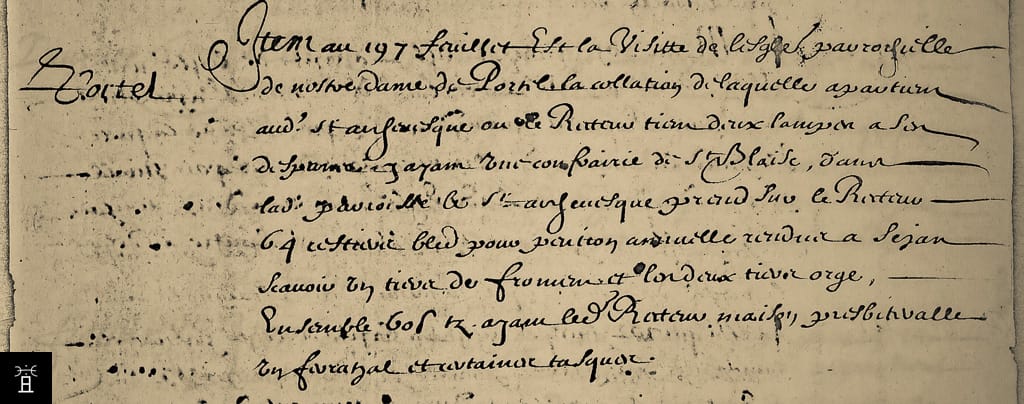 Portel
Item au 197 feuillet Est la Visitte de lesglē parrochielle
de nostre dame de Portel la collation de laquelle apartien
aud.t sr archeuesque ou le Recteur tien deux lampes a ses
despans y ayant une confrairie de St Blaise, dans
lad.e parroisse le sr archeuesque prend sur le Recteur
64 cestiers bled pour pention annuelle rendue a Sejan
scauoir un tiers de fromen et les deux tiers orge,
Ensemble 60 s tz ayant led.t Recteur maison presbiteralle
un ferratjal et certaines tasques